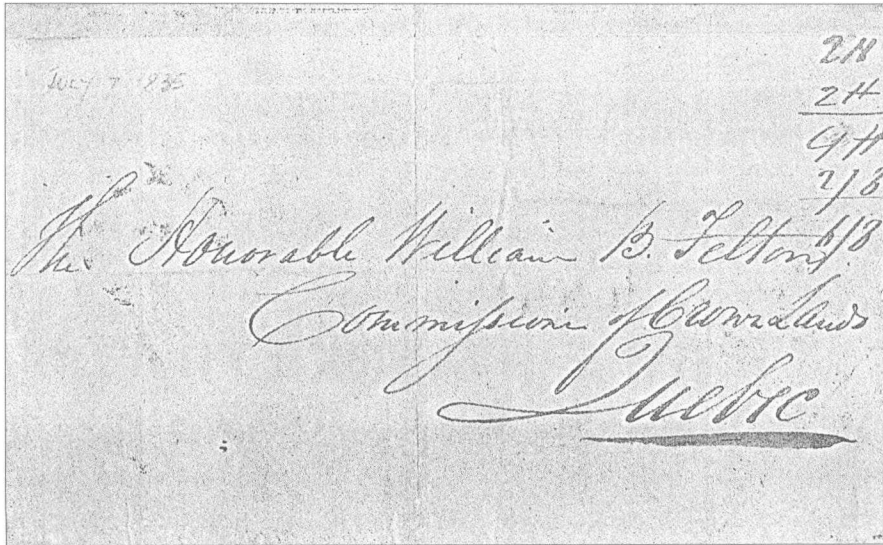 July 7 1835
2N
2H
9H
2/3
The Honorable William B. Felton
Commissioner of Crown Lands
Quebec